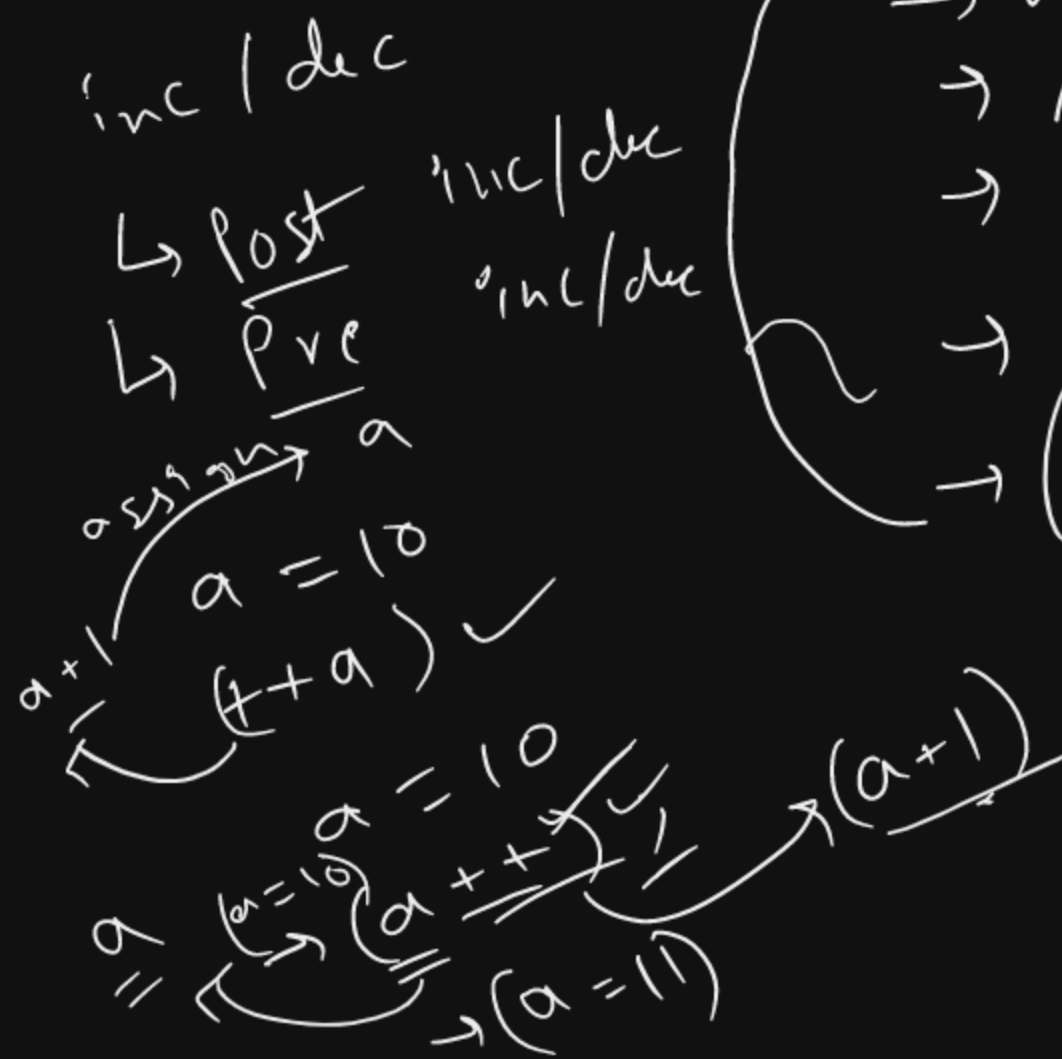 inc / dec
↳ Post inc/dec
↳ Pre inc/dec
assign → a
a = 10
a + 1
(++a) ✓
a = 10
(a++) ✓ 1
(a+1)
a (a=10)
→ (a = 11)